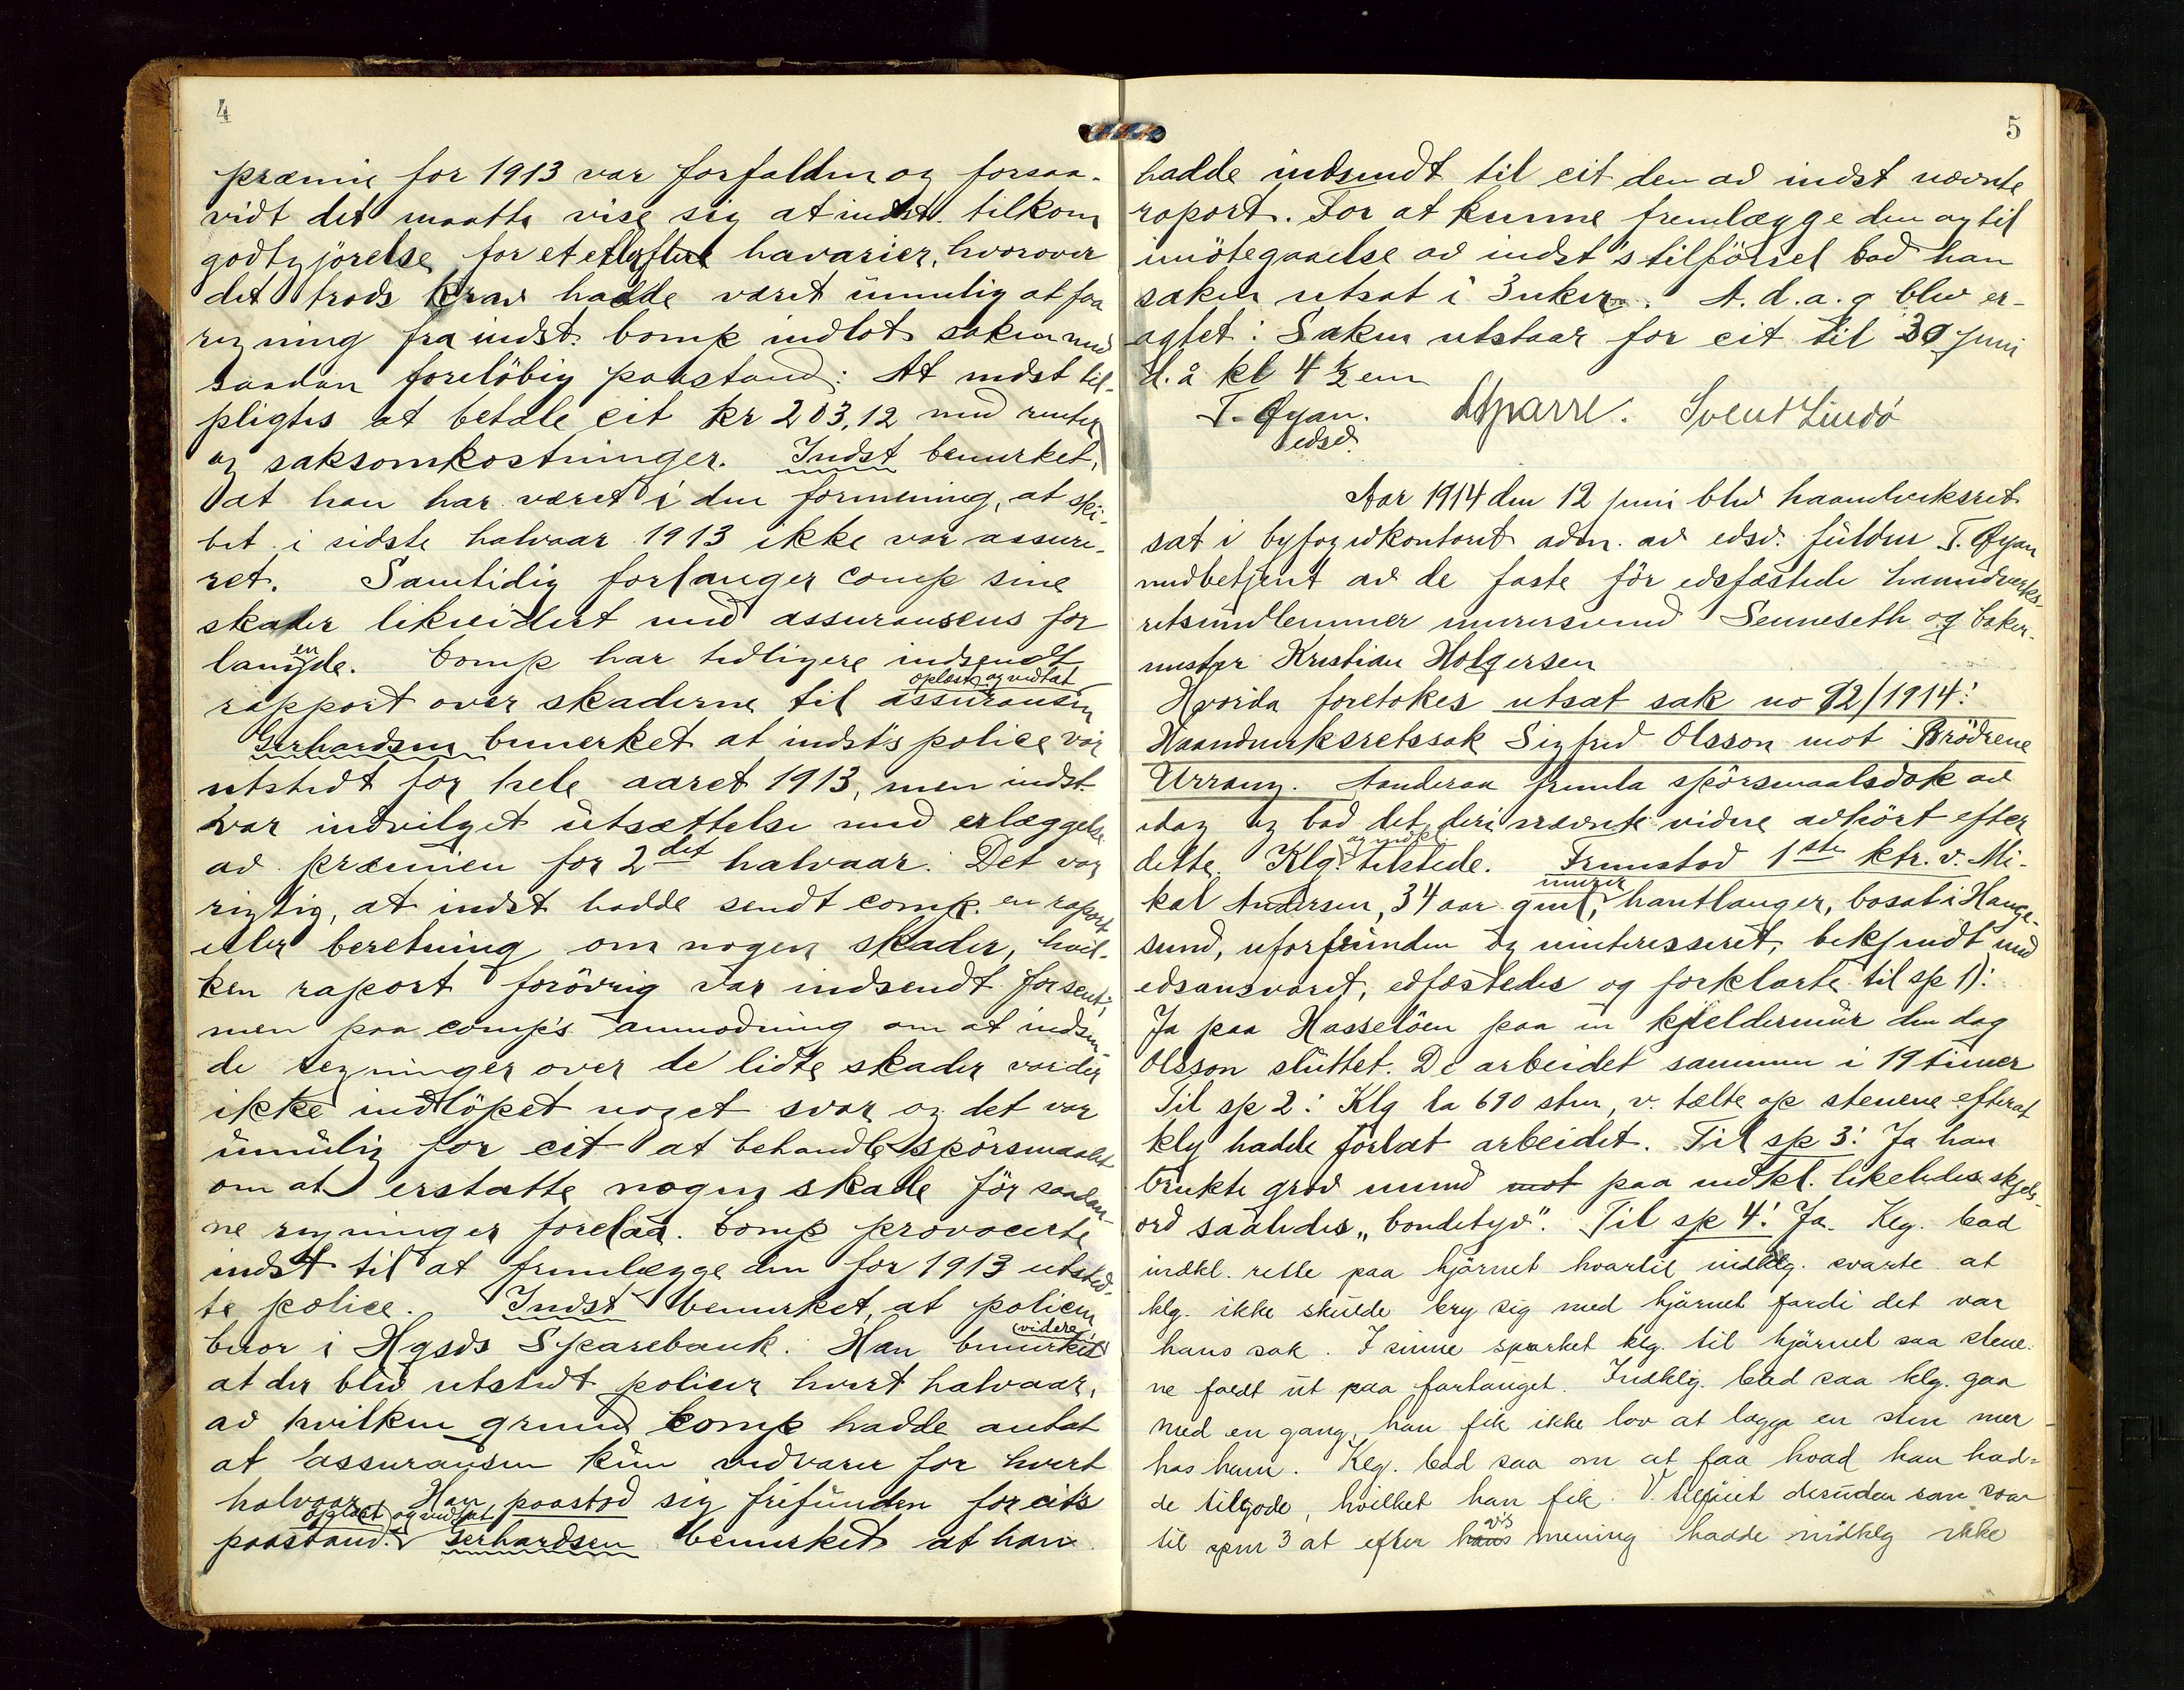 4
præmie for 1913 var forfalden og forsaa-
vidt det maatte vise sig at indst. tilkom
godtgjörelse for et eller flere havarier, hvorover
det trods krav hadde været umulig at faa
regning fra indst. Comp indlot saken med
saadan foreløbig paastand: At indst til-
pligtes at betale cit kr 203,12 med renter
og saksomkostninger. Indst bemerket,
at han har været i den formening, at ski-
bet i sidste halvaar 1913 ikke var assure-
ret. Samtidig forlanger comp sine
skader likvidert med assuransens for
langende. Comp har tidligere indsendt
oplæst og vedtat
rapport over skaderne til assuransen
Gerhardsen bemerket at indst's police var
utstedt for hele aaret 1913, men indst
var indvilget utsættelse med erlæggelse
av præmien for 2det halvaar. Det var
rigtig, at indst hadde sendt comp. en raport
eller beretning om nogen skader, hvil-
ken raport forövrig var indsendt forsent;
men paa comp's anmodning om at indsen-
de regninger over de lidte skader var der
ikke indlöpet noget svar og det var
umulig for cit at behandle spörsmaalet
om at erstatte nogen skade för saadan-
ne regninger forelaa. Comp provocerte
indst til at fremlægge den for 1913 utsted-
te police. Indst bemerket, at policen
beror i Hgsds Sparebank. Han bemerket
videre,
at der blev utstedt policer hvert halvaar,
av hvilken grund comp hadde antat
at assuransen kun vedvarer for hvert
halvaar. Han paastod sig frifunden for cits
oplæst og vedtat
paastand. Gerhardsen bemerket at han
5
hadde indsendt til cit den av indst nævnte
raport. For at kunne fremlægge den og til
imötegaaelse av indst's tilförsel bad han
saken utsat i 3 uker. A. d. a. g blev er-
agtet: Saken utstaar for cit til 30 juni
d. å kl 4 ½ em
T. Øyan. Sparre. Svend Lindö
edsv.
Aar 1914 den 12 juni blev haandverksret
sat i byfogedkontoret adm. av edsv. fuldm T. Øyan
medbetjent av de faste för edsfæstede haandverks-
retsmedlemmer murersvend Senneseth og baker-
mester Kristian Holgersen
Hvorda foretokes utsat sak no 92/1914:
Haandverksretssak Sigfred Olsson mot Brödrene
Urrang. Aanderaa fremla spörsmaalsdok av
idag og bad det deri nævnte vidne avhört efter
og indkl.
dette. Klg. tilstede. Fremstod 1ste ktr. v. Mi-
murer
kal Andersen, 34 aar gml, hantlanger, bosat i Hauge-
sund, uforfunden og uinteresseret, bekjendt med
edsansvaret, edfæstedes og forklarte til sp 1):
Ja paa Hasselöen paa en kjeldermur den dag
Olsson sluttet. De arbeidet sammen i 19 timer
Til sp 2: Klg la 690 sten, v. tælte op stenene efterat
klg hadde forlat arbeidet. Til sp 3: Ja han
brukte grov mund mot paa indkl. likeledes skjels-
ord saaledes „bondetyv". Til sp 4: Ja. Klg. bad
indkl. rette paa hjörnet hvortil indklg. svarte at
klg. ikke skulde bry sig med hjörnet fordi det var
hans sak. I sinne sparket klg. til hjörnet saa stene-
ne faldt ut paa fortauget. Indklg. bad saa klg. gaa
ned en gang, han fik ikke lov at lægge en sten mer
hos ham. Klg. bad saa om at faa hvad han had-
de tilgode, hvilket han fik. V. tilföiet desuden som svar
til spm 3 at efter hans v's mening hadde indklg ikke